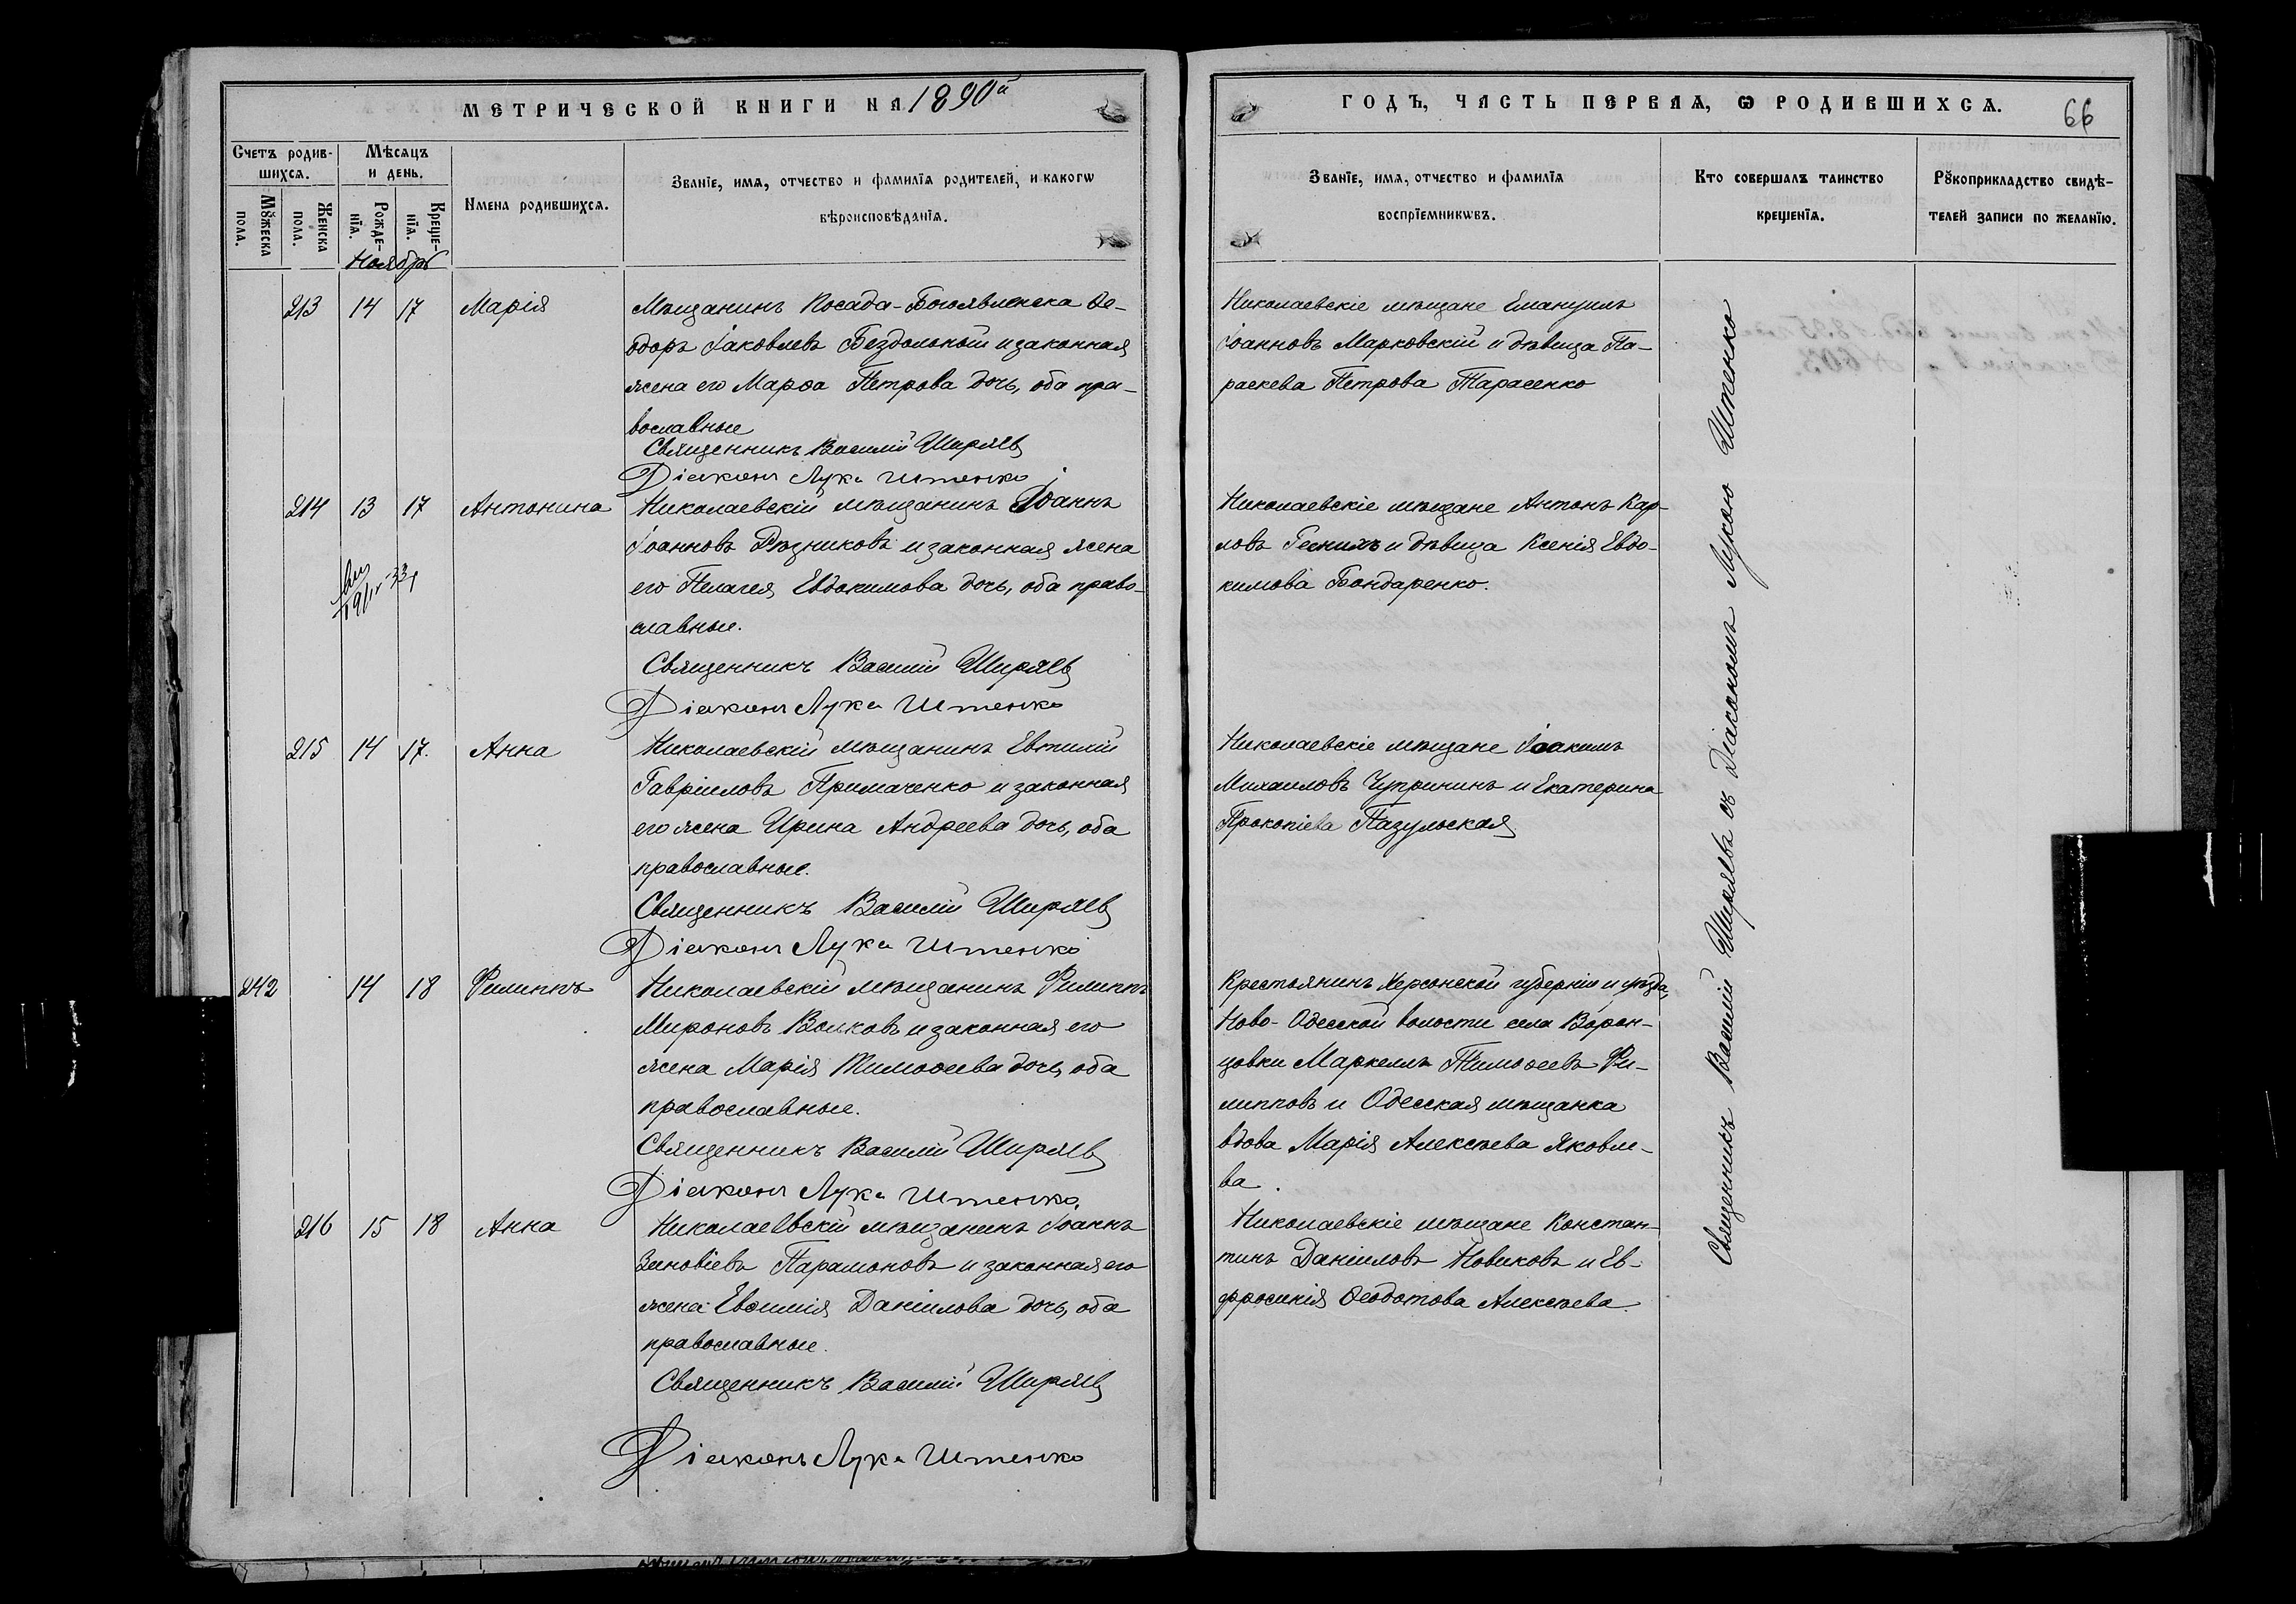 МЕТРИЧЕСКОЙ КНИГИ НА 1890й
ГОДЪ, ЧАСТЬ ПЕРВАЯ, Ѡ РОДИВШИХСѦ.
66
Счетъ родив-
шихсѧ.
Мѣсѧцъ
и день.
Имена родившихсѧ.
Званїе, имѧ, отчество и фамилїѧ родителей, и какогѡ
вѣроисповѣданїѧ.
Мꙋжеска
пола.
Женска
пола.
Рожде-
нїѧ.
Креще-
нїѧ.
Званїе, имѧ, отчество и фамилїѧ
воспрїемникѡвъ.
Кто совершалъ таинство
крещенїѧ.
Рꙋкоприкладство свидѣ-
телей записи по желанїю.
Ноябрь
213 14 17 Марія
Мѣщанинъ Посада-Богоявленска Ѳе-
одоръ Іаковлевъ Бездольный и законная
жена его Марѳа Петрова дочь, оба пра-
вославные
Священникъ Василій Ширяев
Діаконъ Лука Иштенко
Николаевскіе мѣщане Емануилъ
Іоанновъ Марковскій и дѣвица Па-
раскева Петрова Тарасенко
214 13 17 Антонина
Николаевскій мѣщанинъ Іоаннъ
Іоанновъ Рѣзниковъ и законная жена
его Пелагея Евдокимова дочь, оба право-
славные.
Священникъ Василій Ширяев
Діаконъ Лука Иштенко
Николаевскіе мѣщане Антонъ Кар-
ловъ и дѣвица Ксенія Евдо-
кимова Бондаренко.
215 14 17. Анна
Николаевскій мѣщанинъ Евтихій
Гавріиловъ Примаченко и законная
его жена Ирина Андреева дочь, оба
православные.
Священникъ Василій Ширяев
Діаконъ Лука Иштенко
Николаевскіе мѣщане Іоакимъ
Михаиловъ Чупрининъ и Екатерина
Прокопіева Пазульская
242 14 18 Филиппъ
Николаевскій мѣщанинъ Филиппъ
Мироновъ Волковъ и законная его
жена Марія Тимоѳеева дочь, оба
православные.
Священникъ Василій Ширяев
Діаконъ Лука Иштенко
Крестьянинъ Херсонской губерніи и уѣзда,
Ново-Одесской волости села Ворон-
цовки Маркеллъ Тимоѳеевъ Фи-
липповъ и Одесская мѣщанка
вдова Марія Алексѣева Яковле-
ва.
216 15 18 Анна
Николаевскій мѣщанинъ Іоаннъ
Зиновіевъ Парамоновъ и законная его
жена Евѳимія Даніилова дочь, оба
православные.
Священникъ Василій Ширяев
Діаконъ Лука Иштенко
Николаевскіе мѣщане Констан-
тинъ Даніиловъ Новиковъ и Ев-
фросинія Ѳеодотова Алексѣева.
Священникъ Василій Ширяевъ съ Діакономъ Лукою Иштенко